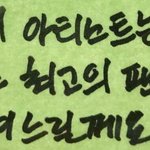 아티스트는
최고의 팬
느낄께요